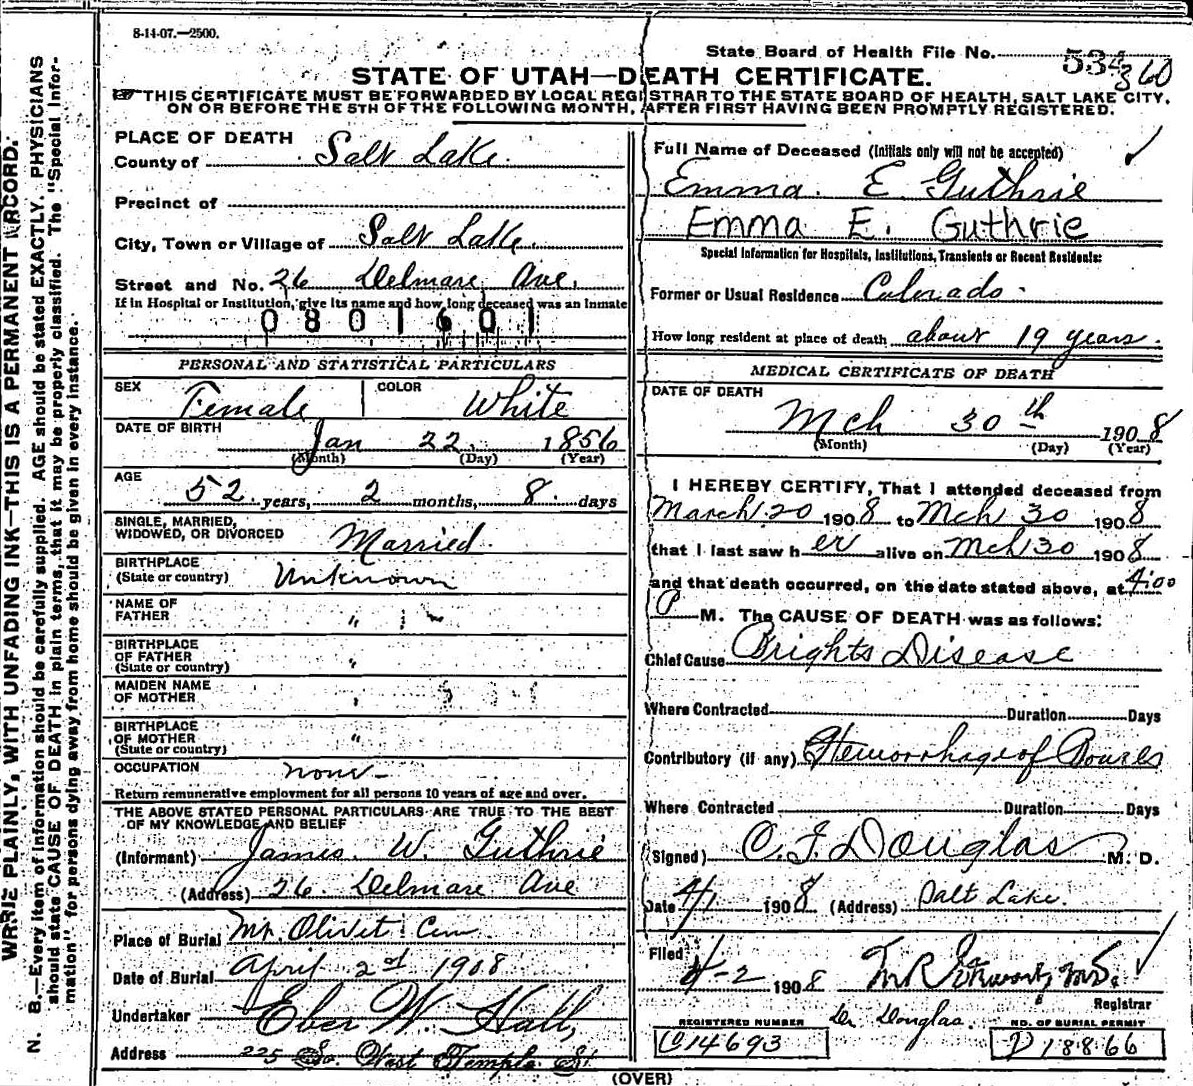 8-14-07.—2500.
State Board of Health File No. 534 360
STATE OF UTAH—DEATH CERTIFICATE.
THIS CERTIFICATE MUST BE FORWARDED BY LOCAL REGISTRAR TO THE STATE BOARD OF HEALTH, SALT LAKE CITY,
ON OR BEFORE THE 5TH OF THE FOLLOWING MONTH, AFTER FIRST HAVING BEEN PROMPTLY REGISTERED.
WRITE PLAINLY, WITH UNFADING INK—THIS IS A PERMANENT RECORD.
N. B.—Every item of information should be carefully supplied. AGE should be stated EXACTLY. PHYSICIANS
should state CAUSE OF DEATH in plain terms, that it may be properly classified. The "Special Infor-
mation" for persons dying away from home should be given in every instance.
PLACE OF DEATH
County of Salt Lake.
Precinct of
City, Town or Village of Salt Lake.
Street and No. 26 Delmare Ave.
If in Hospital or Institution, give its name and how long deceased was an inmate
0801601
PERSONAL AND STATISTICAL PARTICULARS
SEX Female COLOR White
DATE OF BIRTH Jan 22, 1856
(Month) (Day) (Year)
AGE 52 years, 2 months, 8 days
SINGLE, MARRIED,
WIDOWED, OR DIVORCED Married.
BIRTHPLACE
(State or country) Unknown
NAME OF
FATHER "
BIRTHPLACE
OF FATHER "
(State or country)
MAIDEN NAME
OF MOTHER "
BIRTHPLACE
OF MOTHER "
(State or country)
OCCUPATION none
Return remunerative employment for all persons 10 years of age and over.
THE ABOVE STATED PERSONAL PARTICULARS ARE TRUE TO THE BEST
OF MY KNOWLEDGE AND BELIEF
(Informant) James W. Guthrie
(Address) 26 Delmare Ave
Place of Burial Mt. Olivet Cem
Date of Burial April 2nd 1908
Undertaker Eber W. Hall,
Address 225 So. West Temple St.
Full Name of Deceased (Initials only will not be accepted)
Emma. E Guthrie
Emma E. Guthrie
Special Information for Hospitals, Institutions, Transients or Recent Residents:
Former or Usual Residence Colorado.
How long resident at place of death about 19 years.
MEDICAL CERTIFICATE OF DEATH
DATE OF DEATH
Mch 30th 1908
(Month) (Day) (Year)
I HEREBY CERTIFY, That I attended deceased from
March 20 1908 to Mch 30 1908
that I last saw her alive on Mch 30 1908
and that death occurred, on the date stated above, at 4:00
P M. The CAUSE OF DEATH was as follows:
Chief Cause Brights Disease
Where Contracted Duration Days
Contributory (if any) Hemorrhage of Bowels
Where Contracted Duration Days
(Signed) C. F. Douglas M. D.
Date 4/1 1908 (Address) Salt Lake.
Filed 4-2 1908
Registrar
Dr Douglas.
REGISTERED NUMBER
C14693
NO. OF BURIAL PERMIT
D18866
(OVER)